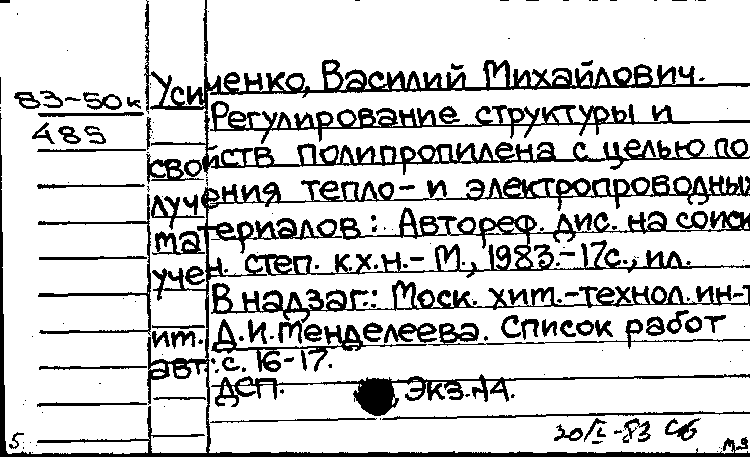 83-50к
485
Усиченко, Василий Михайлович.
Регулирование структуры и
свойств полипропилена с целью по
лучения тепло- и электропроводных
материалов: Автореф. дис. на соиск
учен. степ. к.х.н.- М., 1983.-17с., ил.
В надзаг.: Моск. хим.-технол. ин-т
им. Д.И. Менделеева. Список работ
авт.: с. 16-17.
ДСП. Экз.№4.
20/I-83 Сб
5